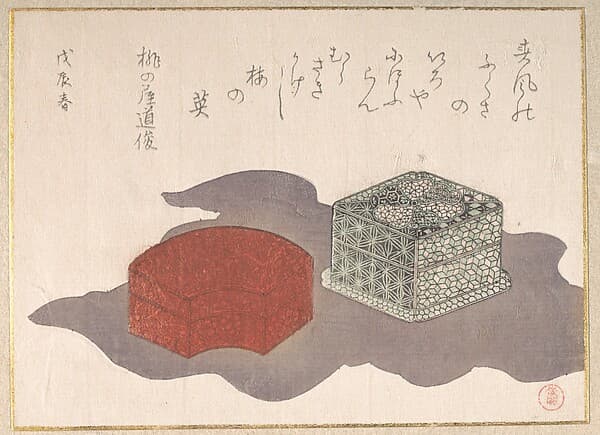 春風の
ふくさ
の
いろ
や
にほふ
らん
むら
さき
かけし
梅
の
英
桃の屋道俊
戊辰春